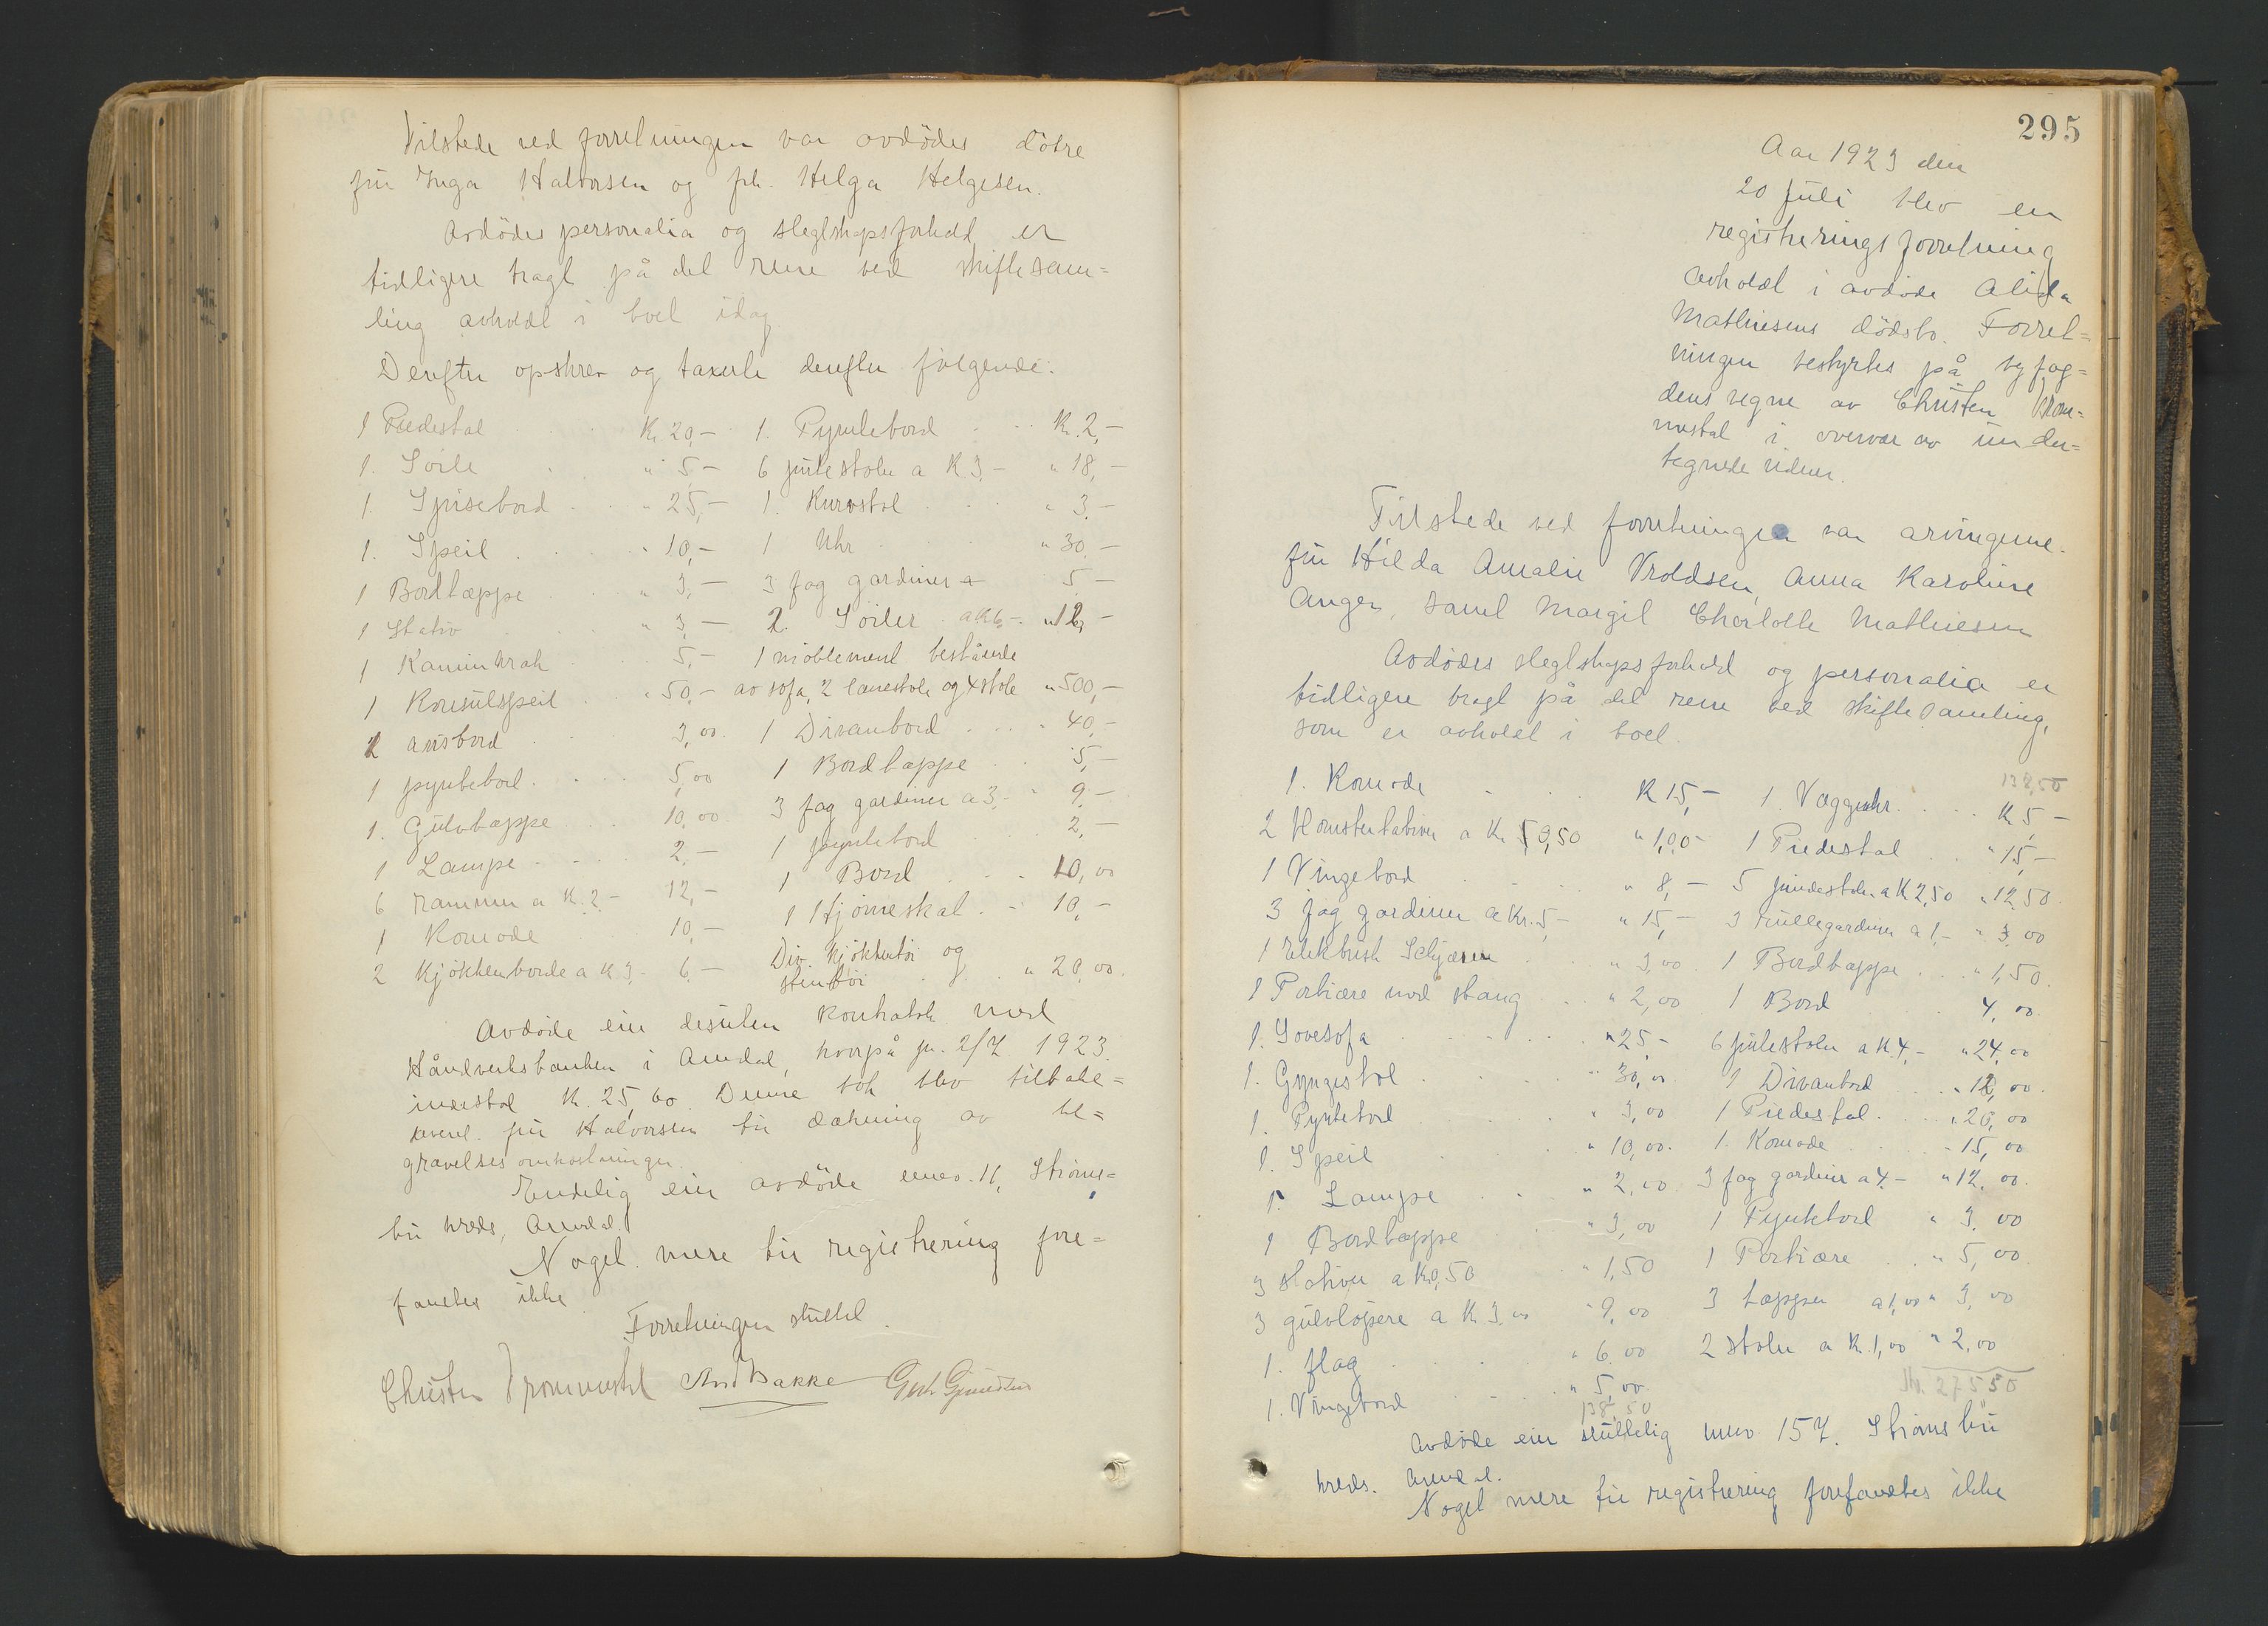 Tilstede ved forretningen var avdødes døtre
fru Inga Halvorsen og frk. Helga Helgesen.
Avdødes personalia og slegtskapsforhold er
tidligere bragt på det rene ved skiftesam=
ling avholdt i boet idag
Derefter opskrev og taxerte derefter følgende:
1 Piedestal Kr. 20,-
1. Søile " 5-
1. Spisebord " 25,-
1. Speil " 10,-
1 Bordtæppe " 3,-
1 Stativ " 3,-
1 Kaminkrak 5,-
1 Konsulspeil " 50,-
1 avisbord 3,00
1 pyntebord 5,00
1. Gulvtæppe 10,00
1 Lampe 2,-
6 rammer a K. 2- 12,-
1 Komode 10,-
2 Kjøkkenborde a K 3- 6-
1. Pyntebord Kr. 2,-
6 pinestoler a K 3,- " 18,-
1. Kurvstol " 3,-
1 Uhr " 30,-
3 fag gardiner 5-
2 Søiler a K 6,- " 12,-
1 møblement bestående
av sofa, 2 lænestole og 4 stole " 500,-
1 Divanbord " 40,-
1 Bordtæppe " 5,-
3 fag gardiner a 3,- " 9-
1 pyntebord 2,-
1 Bord 10,00
1 Hjørneskal 10,-
Div. kjøkkentøi og
stentøi " 20,00.
Avdøde eier desuten kontrabok med
Håndverksbanken i Arendal, hvorpå pr. 2/7 1923
innestod kr. 25,60. Denne bok blev tilbake=
leveret fru Halvorsen til dækning av be=
gravelsesomkostninger.
Endelig eier avdøde umv. 11, Strøms=
bu kreds, Arendal.
Noget mere til registrering fore=
fandtes ikke
Forretningen sluttet.
Christen And Bakke
295
Aar 1923 den
20 Juli blev en
registreringsforretning
avholdt i avdøde Alida
Mathiesens dødsbo. Forret=
ningen bestyrtes på byfog=
dens vegne av Christen From=
mestal i overvær av under=
tegnede vidner.
Tilstede ved forretningen var arvingerne
fru Hilda Amalie Troldsen, Anna Karoline
Anger, samt Margit Charlotte Mathiesen
Avdødes slegtskapsforhold og personalia er
tidligere bragt på det rene ved skiftesamling,
som er avholdt i boet.
1. Komode K 15,-
2 Blomsterstativer a Kr 0,50 " 1,00-
1 Vingebord " 8,-
3 fag gardiner a Kr. 5,- " 15,-
1 Elektrisk Schjærm " 3,00
1 Portiære med stang " 2,00
1. Sovesofa " 25,-
1. Gyngestol " 30,00
1. Pyntebord " 3,00
1. Speil " 10,00.
1. Lampe " 2,00
1 Bordtæppe " 3,00
3 stativer a K 0,50 " 1,50
3 gulvløpere a K 3,00 " 9,00
1. flag " 6,00
1. Vingebord " 5,00
138,50
138,50
1 Vægguhr K 5,-
1 Piedestal " 15,-
5 pindestoler a K 2,50 " 12,50.
3 rullegardiner a 1,- " 3,00
1 Bordtæppe " 1,50.
1 Bord 4,00
6 pinestoler a K. 4,- " 24,00
1 Divanbord " 12,00.
1 Piedestal " 20,00
1. Komode " 15,00
3 fag gardiner a 4.- " 12,00.
1 Pyntebord " 3,00
1 Portiære " 5,00
3 tæpper a 1,00 " 3,00
2 stoler a K. 1,00 " 2,00
Kr. 275 50
Avdøde eier sluttelig umv 157. Strømsbu
kreds. Arendal.
Noget mere til registrering forefandtes ikke